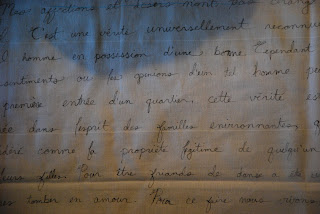 Mes affections et désirs n'ont pas changé
C'est une vérité universellement reconnue
l homme en possession d'une bonne Cependant
sentiments ou les opinions d'un tel homme
première entrée d'un quartier, cette vérité
dans l'esprit des familles environnantes, q
comme la propriété légitime de quelqu'un
filles. Pour être friands de danse a été
tomber en amour. Pour ce faire nous